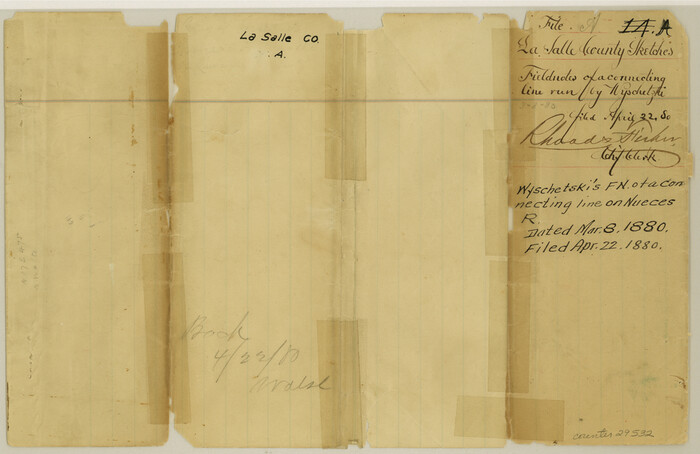 La Salle Co.
A.
Book
4/22/80
Walsh
File A 14. A
La Salle County Sketches
Fieldnotes of a connecting
line run by Wyschetzki
filed April 22. 80
Rhoads Fisher
Chf Clerk
Wyschetski's F.N. of a con
necting line on Nueces
R.
Dated Mar. 8. 1880.
Filed Apr. 22. 1880.
counter 29532